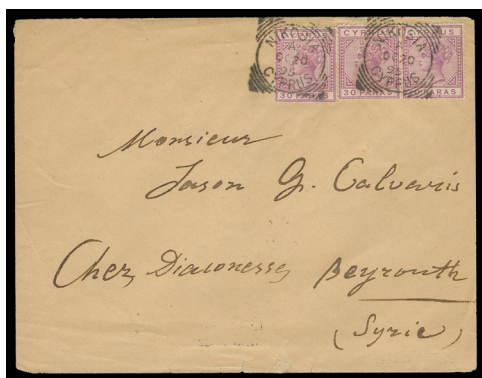 NIKOSIA
A
OC 20
95
CYPRUS
30 PARAS
CYPRUS
30 PARAS
NIKOSIA
A
OC 20
95
CYPRUS
PARAS
Monsieur
Jason G. Calvaris
Chez Diaconesses Beyrouth
(Syrie)